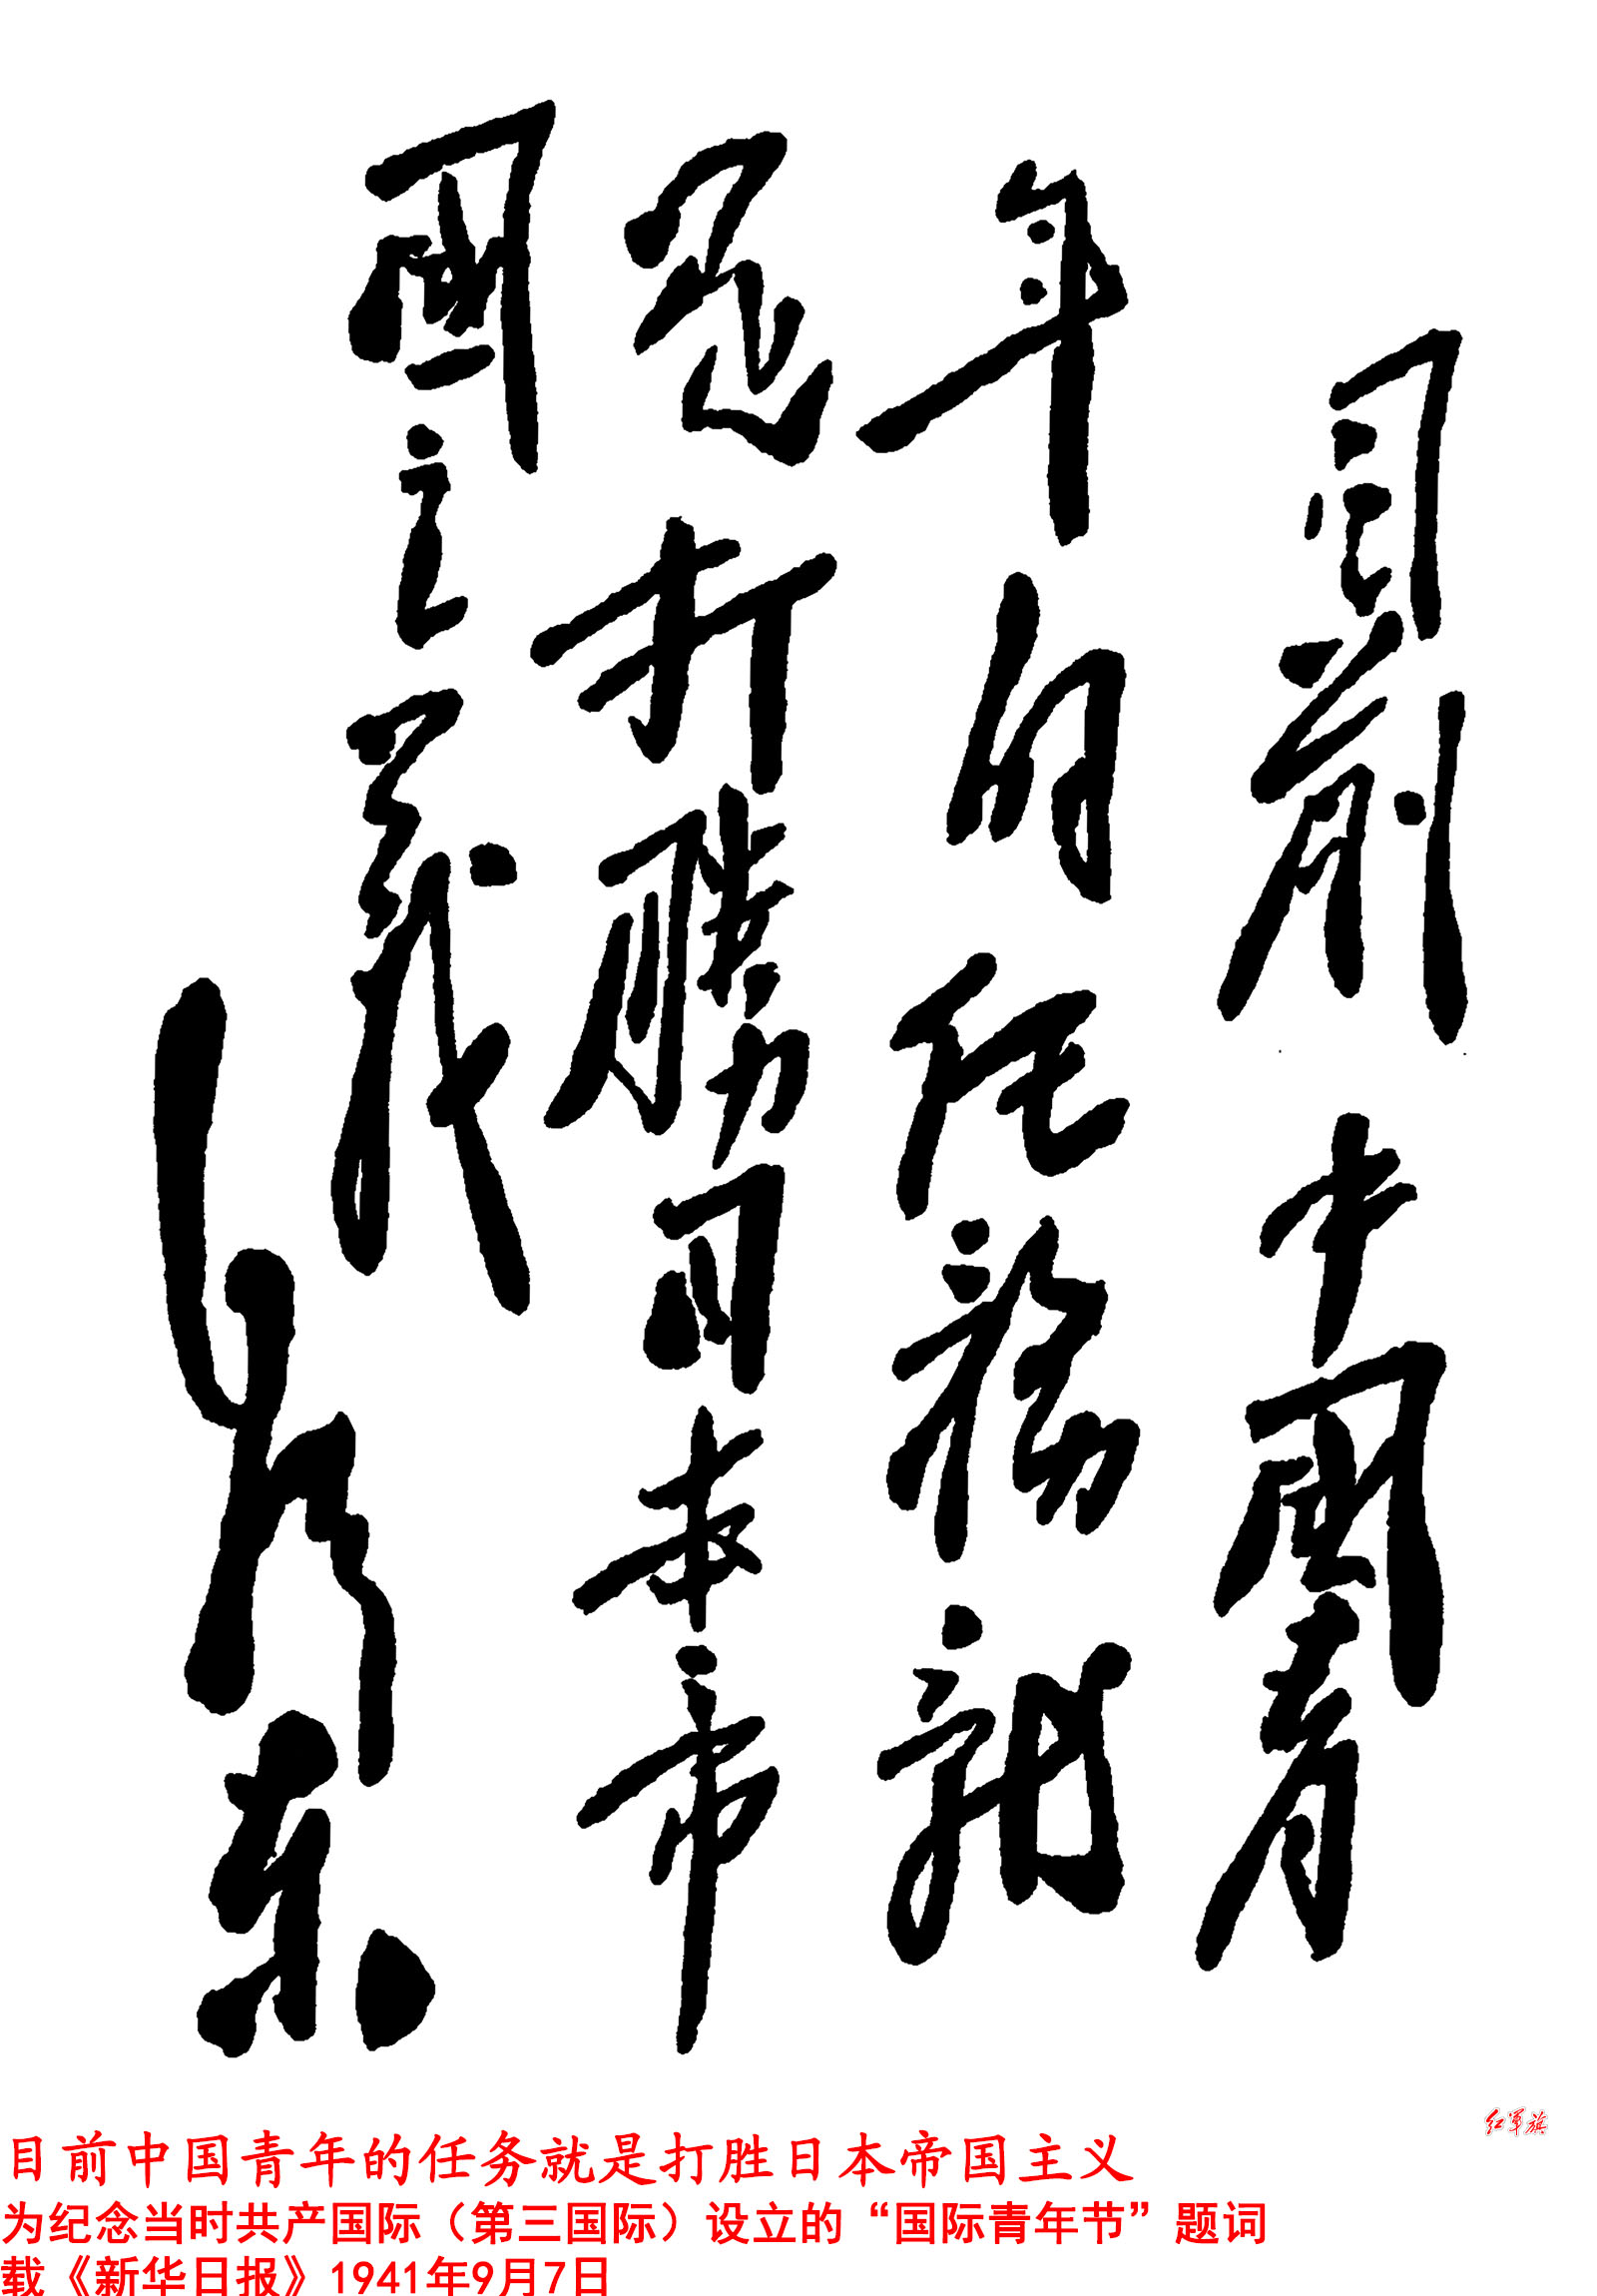 目前中國青
年的任務就
是打勝日本帝
國主義
毛泽东
红军旗
目前中国青年的任务就是打胜日本帝国主义
为纪念当时共产国际（第三国际）设立的“国际青年节”题词
载《新华日报》1941年9月7日